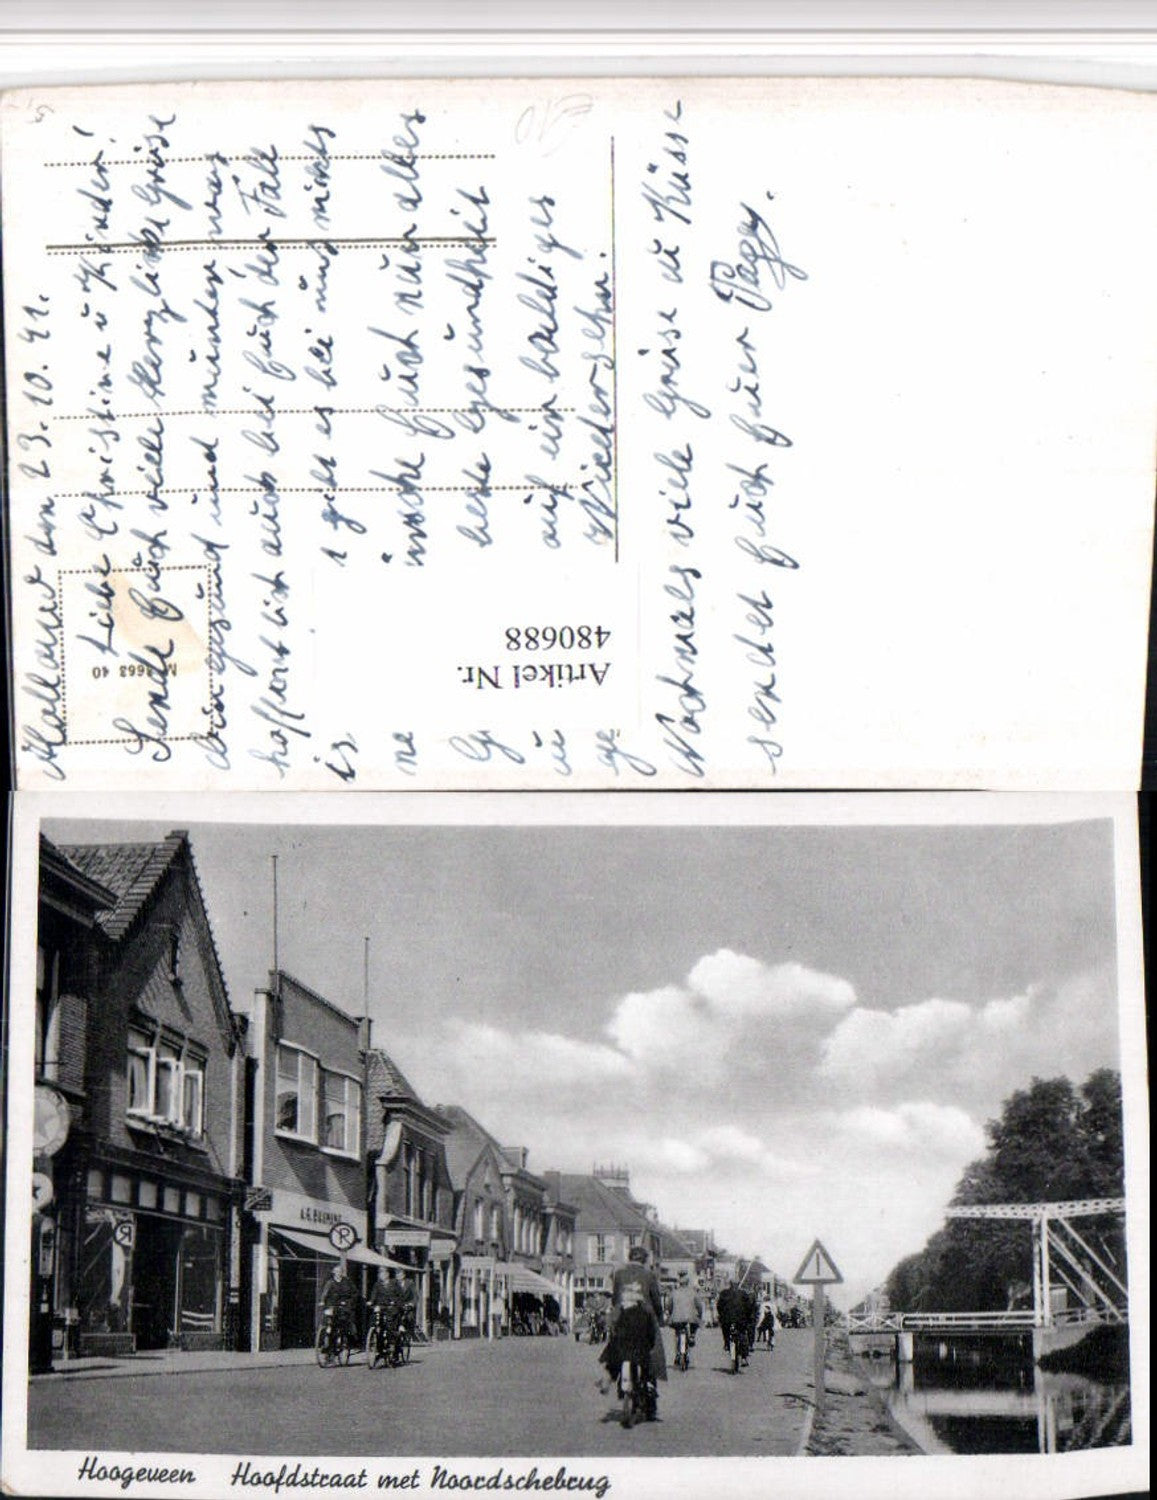 Holland den 23.10.41.
Liebe Christine u Kinder!
Sende Euch viele Herzliche Grüse
bin gesund und munter was
hoffentlich auch bei Euch der Fall
is t geht es bei uns nichts
ne wsche Euch nur alles
G beste Gesundheit
u auf ein baldiges
ge Wiedersehn.
Nochmals viele Grüse u Küsse
sendet Euch Euer Pappy.
Artikel Nr.
480688
1668 40
R
Hoogeveen Hoofdstraat met Noordschebrug